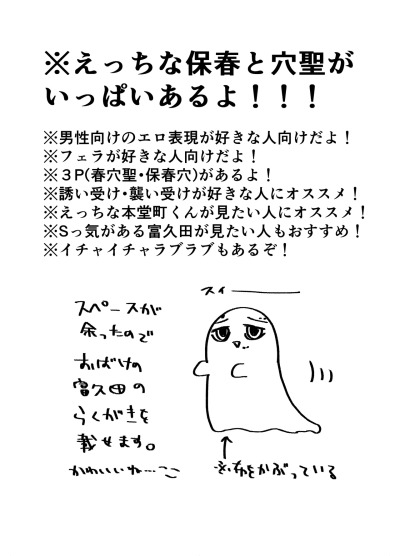 ※えっちな保春と穴聖が
いっぱいあるよ！！！
※男性向けのエロ表現が好きな人向けだよ！
※フェラが好きな人向けだよ！
※３P(春穴聖・保春穴)があるよ！
※誘い受け・襲い受けが好きな人にオススメ！
※えっちな本堂町くんが見たい人にオススメ！
※Sっ気がある富久田が見たい人もおすすめ！
※イチャイチャラブラブもあるぞ！
スィー
スペースが
余ったので
おばけの
富久田の
らくがきを
載せます。
かわいいね…ここ
布をかぶっている